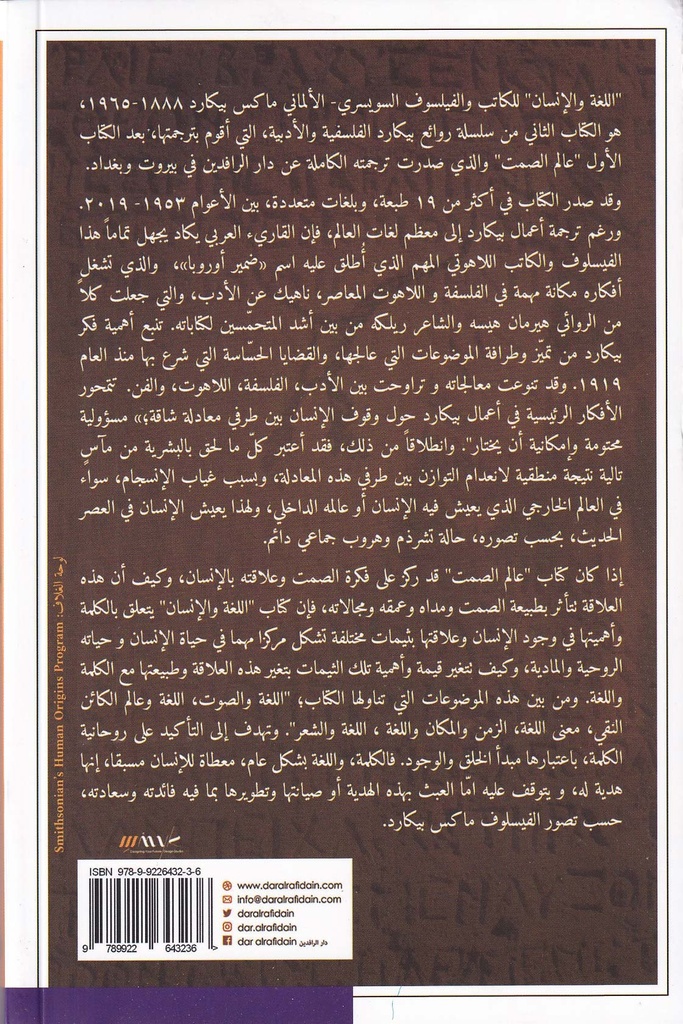 "اللغة والإنسان" للكاتب والفيلسوف السويسري- الألماني ماكس بيكارد ١٨٨٨-١٩٦٥،
هو الكتاب الثاني من سلسلة روائع بيكارد الفلسفية والأدبية، التي أقوم بترجمتها، بعد الكتاب
الأول "عالم الصمت" والذي صدرت ترجمته الكاملة عن دار الرافدين في بيروت وبغداد.
وقد صدر الكتاب في أكثر من ١٩ طبعة، وبلغات متعددة، بين الأعوام ١٩٥٣- ٢٠١٩.
ورغم ترجمة أعمال بيكارد إلى معظم لغات العالم، فإن القاريء العربي يكاد يجهل تماماً هذا
الفيسلوف والكاتب اللاهوتي المهم الذي أُطلق عليه اسم «ضمير أوروبا»، والذي تشغل
أفكاره مكانة مهمة في الفلسفة و اللاهوت المعاصر، ناهيك عن الأدب، والتي جعلت كلاً
من الروائي هيرمان هيسه والشاعر ريلكه من بين أشد المتحمّسين لكتاباته. تنبع أهمية فكر
بيكارد من تميّز وطرافة الموضوعات التي عالجها، والقضايا الحسّاسة التي شرع بها منذ العام
١٩١٩. وقد تنوعت معالجاته و تراوحت بين الأدب، الفلسفة، اللاهوت، والفن. تتمحور
الأفكار الرئيسية في أعمال بيكارد حول وقوف الإنسان بين طرفي معادلة شاقة؛» مسؤولية
محتومة وإمكانية أن يختار". وانطلاقاً من ذلك، فقد أعتبر كلّ ما لحق بالبشرية من مآسٍ
تالية نتيجة منطقية لانعدام التوازن بين طرفي هذه المعادلة، وبسبب غياب الإنسجام، سواءً
في العالم الخارجي الذي يعيش فيه الإنسان أو عالمه الداخلي، ولهذا يعيش الإنسان في العصر
الحديث، بحسب تصوره، حالة تشرذم وهروب جماعي دائم.
إذا كان كتاب "عالم الصمت" قد ركز على فكرة الصمت وعلاقته بالإنسان، وكيف أن هذه
العلاقة تتأثر بطبيعة الصمت ومداه وعمقه ومجالاته، فإن كتاب "اللغة والإنسان" يتعلق بالكلمة
وأهميتها في وجود الإنسان وعلاقتها بثيمات مختلفة تشكل مركزا مهما في حياة الإنسان و حياته
الروحية والمادية، وكيف تتغير قيمة وأهمية تلك الثيمات بتغير هذه العلاقة وطبيعتها مع الكلمة
واللغة. ومن بين هذه الموضوعات التي تناولها الكتاب؛ "اللغة والصوت، اللغة وعالم الكائن
النقي، معنى اللغة، الزمن والمكان واللغة ، اللغة والشعر". وتهدف إلى التأكيد على روحانية
الكلمة، باعتبارها مبدأ الخلق والوجود. فالكلمة، واللغة بشكل عام، معطاة للإنسان مسبقا، إنها
هدية له، و يتوقف عليه امّا العبث بهذه الهدية أو صيانتها وتطويرها بما فيه فائدته وسعادته،
حسب تصور الفيسلوف ماكس بيكارد.
لوحة الغلاف: Smithsonian's Human Origins Program
ISBN 978-9-9226432-3-6
9 789922 643236 >
www.daralrafidain.com
info@daralrafidain.com
daralrafidain
dar.alrafidain
dar alrafidain دار الرافدين